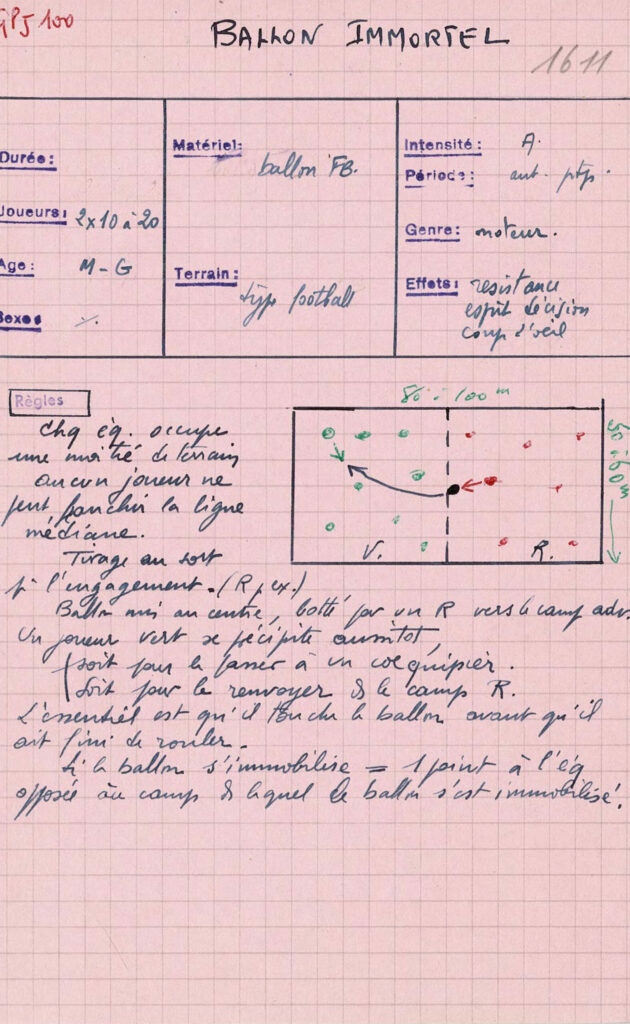 GPJ 100
BALLON IMMORTEL
1611
Durée :
Joueurs : 2x10 à 20
Age : M - G
Sexe
Matériel :
ballon FB.
Terrain :
type football
Intensité : A.
Période : aut. ptps.
Genre : moteur.
Effets : resistance
esprit décision
coup d'oeil
Règles
80 à 100 m
50 à 60 m
V.
R.
Chq éq. occupe
une moitié de terrain
aucun joueur ne
peut franchir la ligne
médiane.
Tirage au sort
pr l'engagement. (R p. ex.)
Ballon mis au centre, botté par un R vers le camp adv.
Un joueur vert se précipite aussitôt,
soit pour le passer à un coéquipier.
soit pour le renvoyer ds le camp R.
L'essentiel est qu'il touche le ballon avant qu'il
ait fini de rouler.
Si le ballon s'immobilise = 1 point à l'éq
opposée au camp ds lequel le ballon s'est immobilisé.